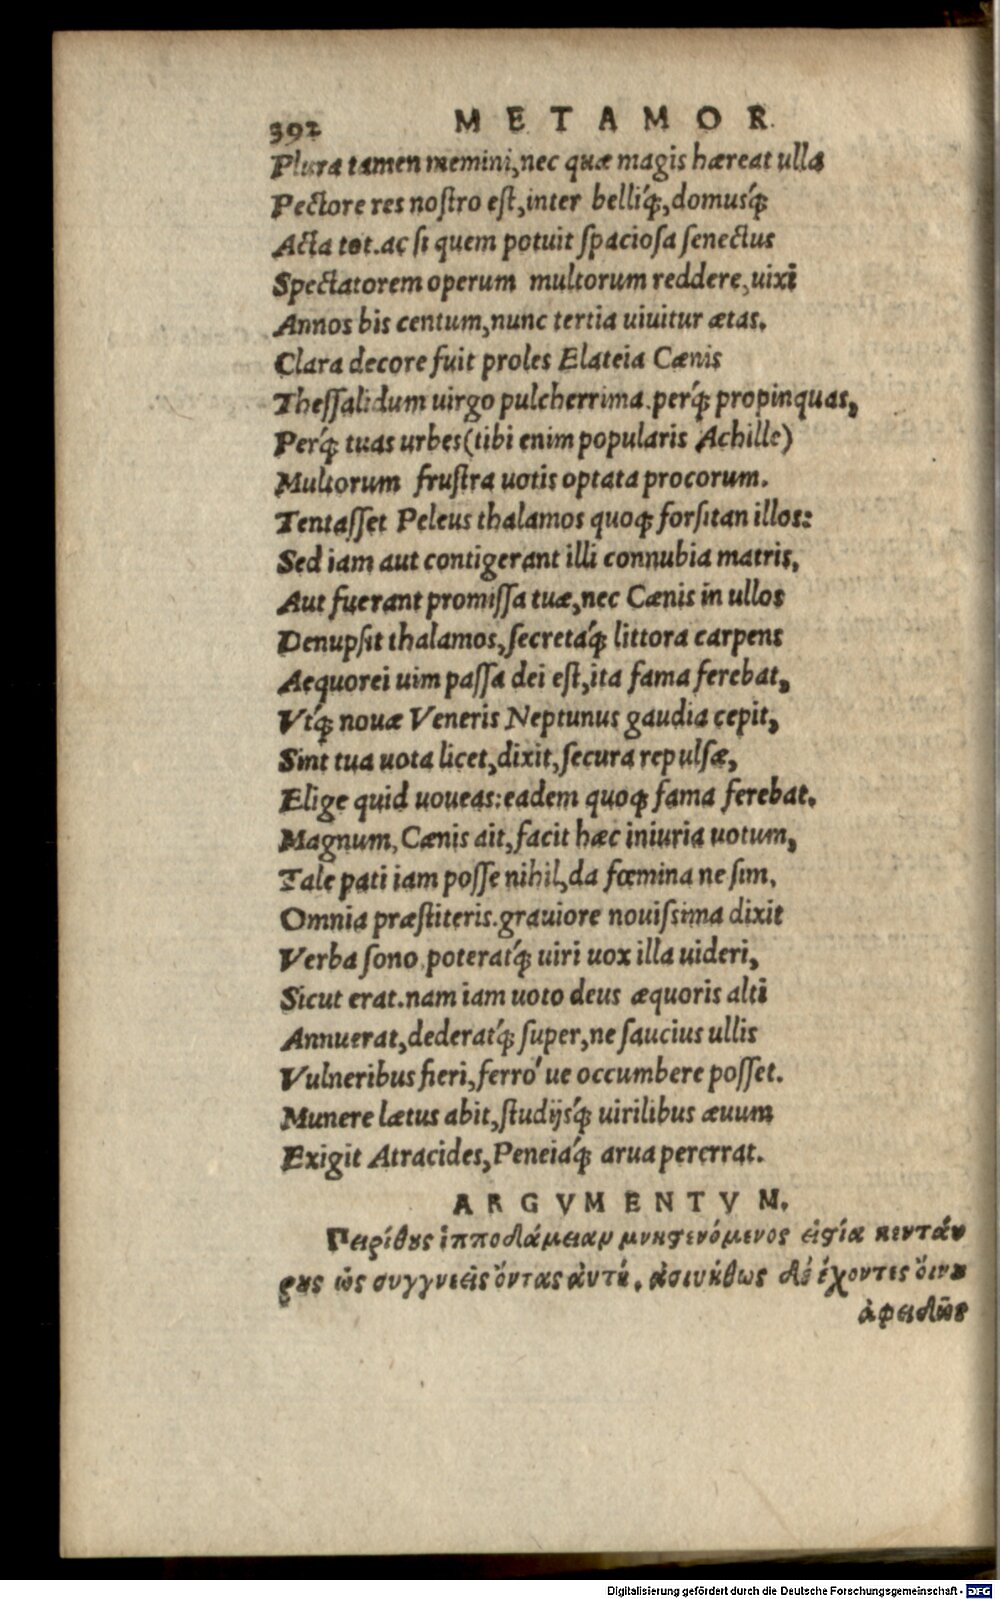 392 METAMOR
Plura tamen memini, nec quæ magis hæreat ulla
Pectore res nostro est, inter belliq́;, domusq́;
Acta tot. ac si quem potuit spaciosa senectus
Spectatorem operum multorum reddere, uixi
Annos bis centum, nunc tertia uiuitur ætas.
Clara decore fuit proles Elateia Cænis
Thessalidum uirgo pulcherrima. perq́; propinquas,
Perq́; tuas urbes (tibi enim popularis Achille)
Multorum frustra uotis optata procorum.
Tentasset Peleus thalamos quoq; forsitan illos:
Sed iam aut contigerant illi connubia matris,
Aut fuerant promissa tuæ, nec Cænis in ullos
Denupsit thalamos, secretaq́; littora carpens
Aequorei uim passa dei est, ita fama ferebat,
Vtq́; nouæ Veneris Neptunus gaudia cepit,
Sint tua uota licet, dixit, secura repulsæ,
Elige quid uoueas: eadem quoq; fama ferebat.
Magnum, Cænis ait, facit hæc iniuria uotum,
Tale pati iam posse nihil, da fœmina ne sim,
Omnia præstiteris. grauiore nouissima dixit
Verba sono, poteratq́; uiri uox illa uideri,
Sicut erat. nam iam uoto deus æquoris alti
Annuerat, dederatq́; super, ne saucius ullis
Vulneribus fieri, ferró ue occumbere posset.
Munere lætus abit, studijsq́; uirilibus æuum
Exigit Atracides, Peneiaq́; arua pererrat.
ARGVMENTVM.
Πειρίθȣς ἱπποδάμειαν μνηστευόμενος ἑιστία κενταύ
ρȣς ὡς συγγενεῖς ὄντας ἀυτȣ͂. ἀσυνήθως δὲ ἔχοντες ὄινȣ
ἀφειδῶς
Digitalisierung gefördert durch die Deutsche Forschungsgemeinschaft - DFG